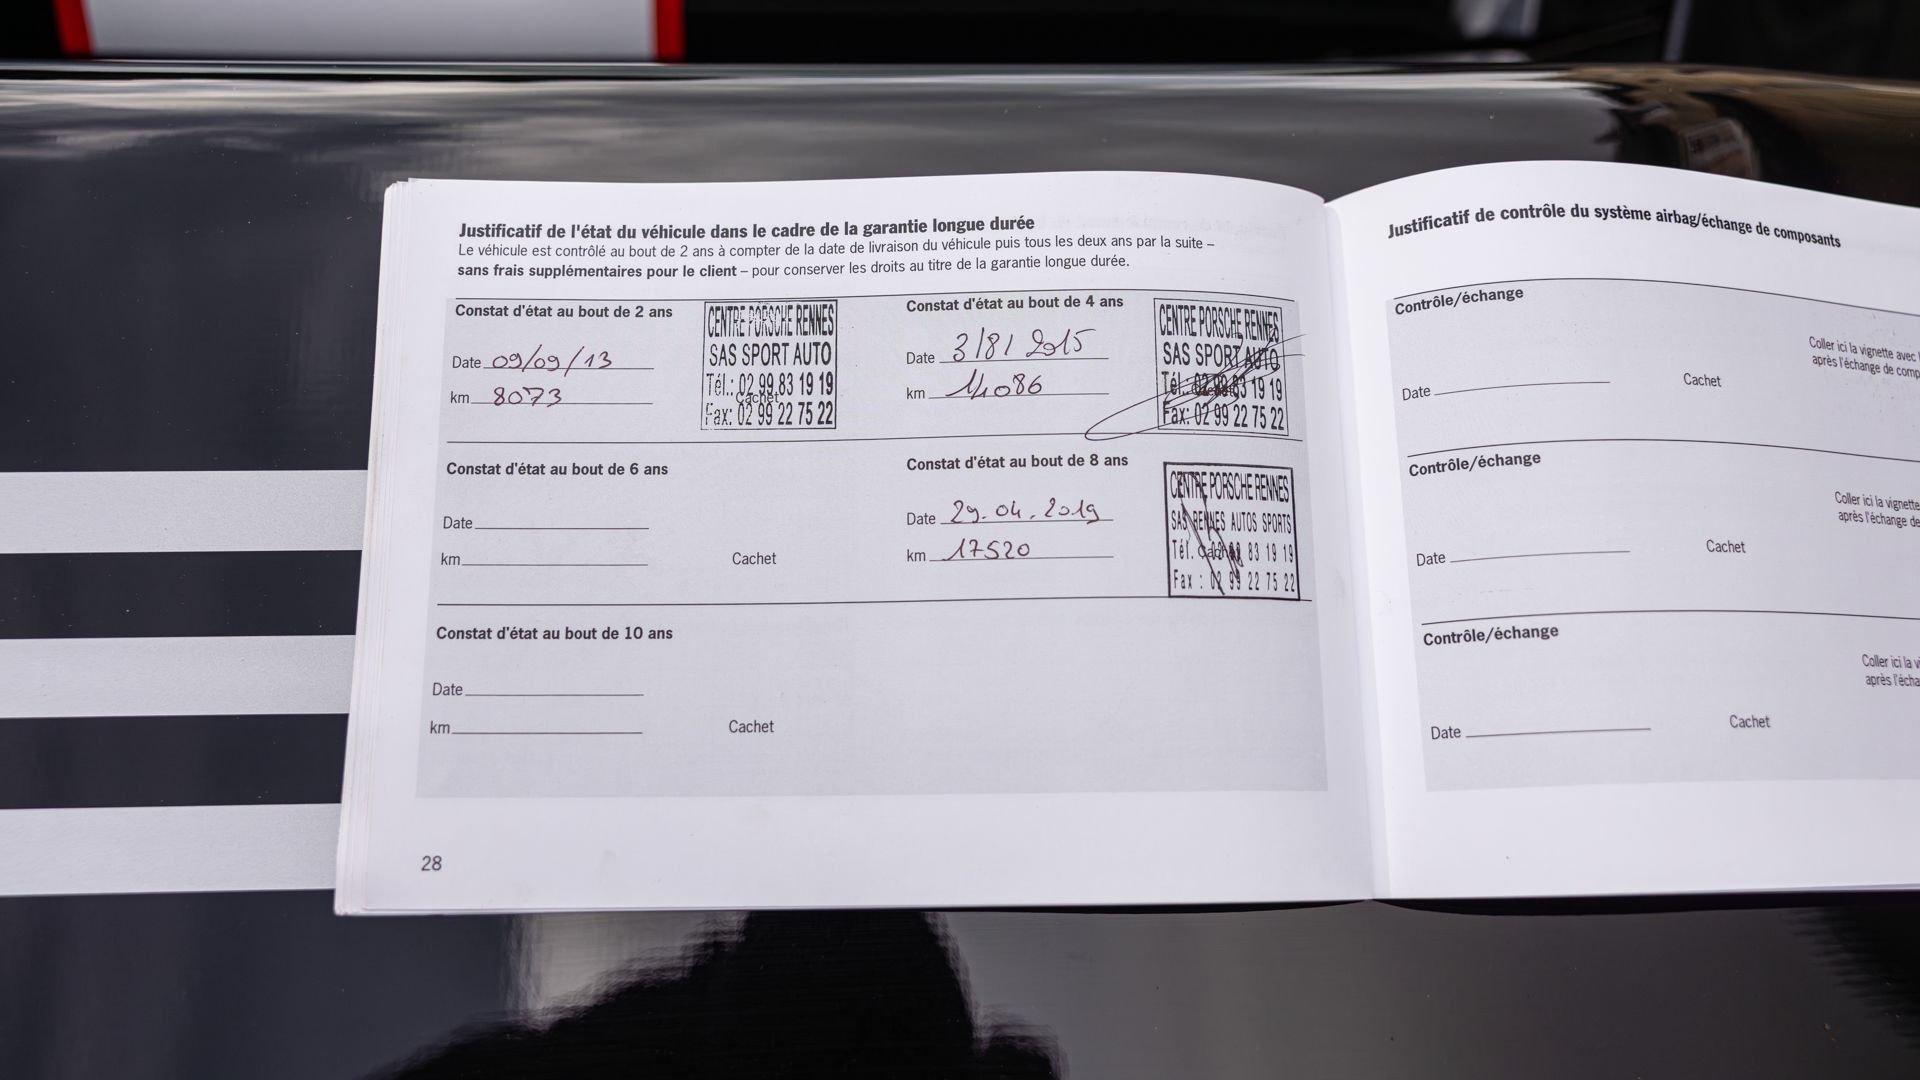 Justificatif de l'état du véhicule dans le cadre de la garantie longue durée
Le véhicule est contrôlé au bout de 2 ans à compter de la date de livraison du véhicule puis tous les deux ans par la suite –
sans frais supplémentaires pour le client – pour conserver les droits au titre de la garantie longue durée.
Constat d'état au bout de 2 ans
Date 09/09/13
km 8073
CENTRE PORSCHE RENNES
SAS SPORT AUTO
Tél.: 02 99 83 19 19
Cachet
Fax: 02 99 22 75 22
Constat d'état au bout de 4 ans
Date 3/8/2015
km 14086
CENTRE PORSCHE RENNES
SAS SPORT AUTO
Tél.: 02 99 83 19 19
Fax: 02 99 22 75 22
Constat d'état au bout de 6 ans
Date
km
Cachet
Constat d'état au bout de 8 ans
Date 29.04.2019
km 17520
CENTRE PORSCHE RENNES
SAS RENNES AUTOS SPORTS
Tél. 83 19 19
Cachet
Fax : 02 99 22 75 22
Constat d'état au bout de 10 ans
Date
km
Cachet
28
Justificatif de contrôle du système airbag/échange de composants
Contrôle/échange
Coller ici la vignette avec
après l'échange de comp
Date
Cachet
Contrôle/échange
Coller ici la vignette
après l'échange de
Date
Cachet
Contrôle/échange
Coller ici la v
après l'écha
Date
Cachet